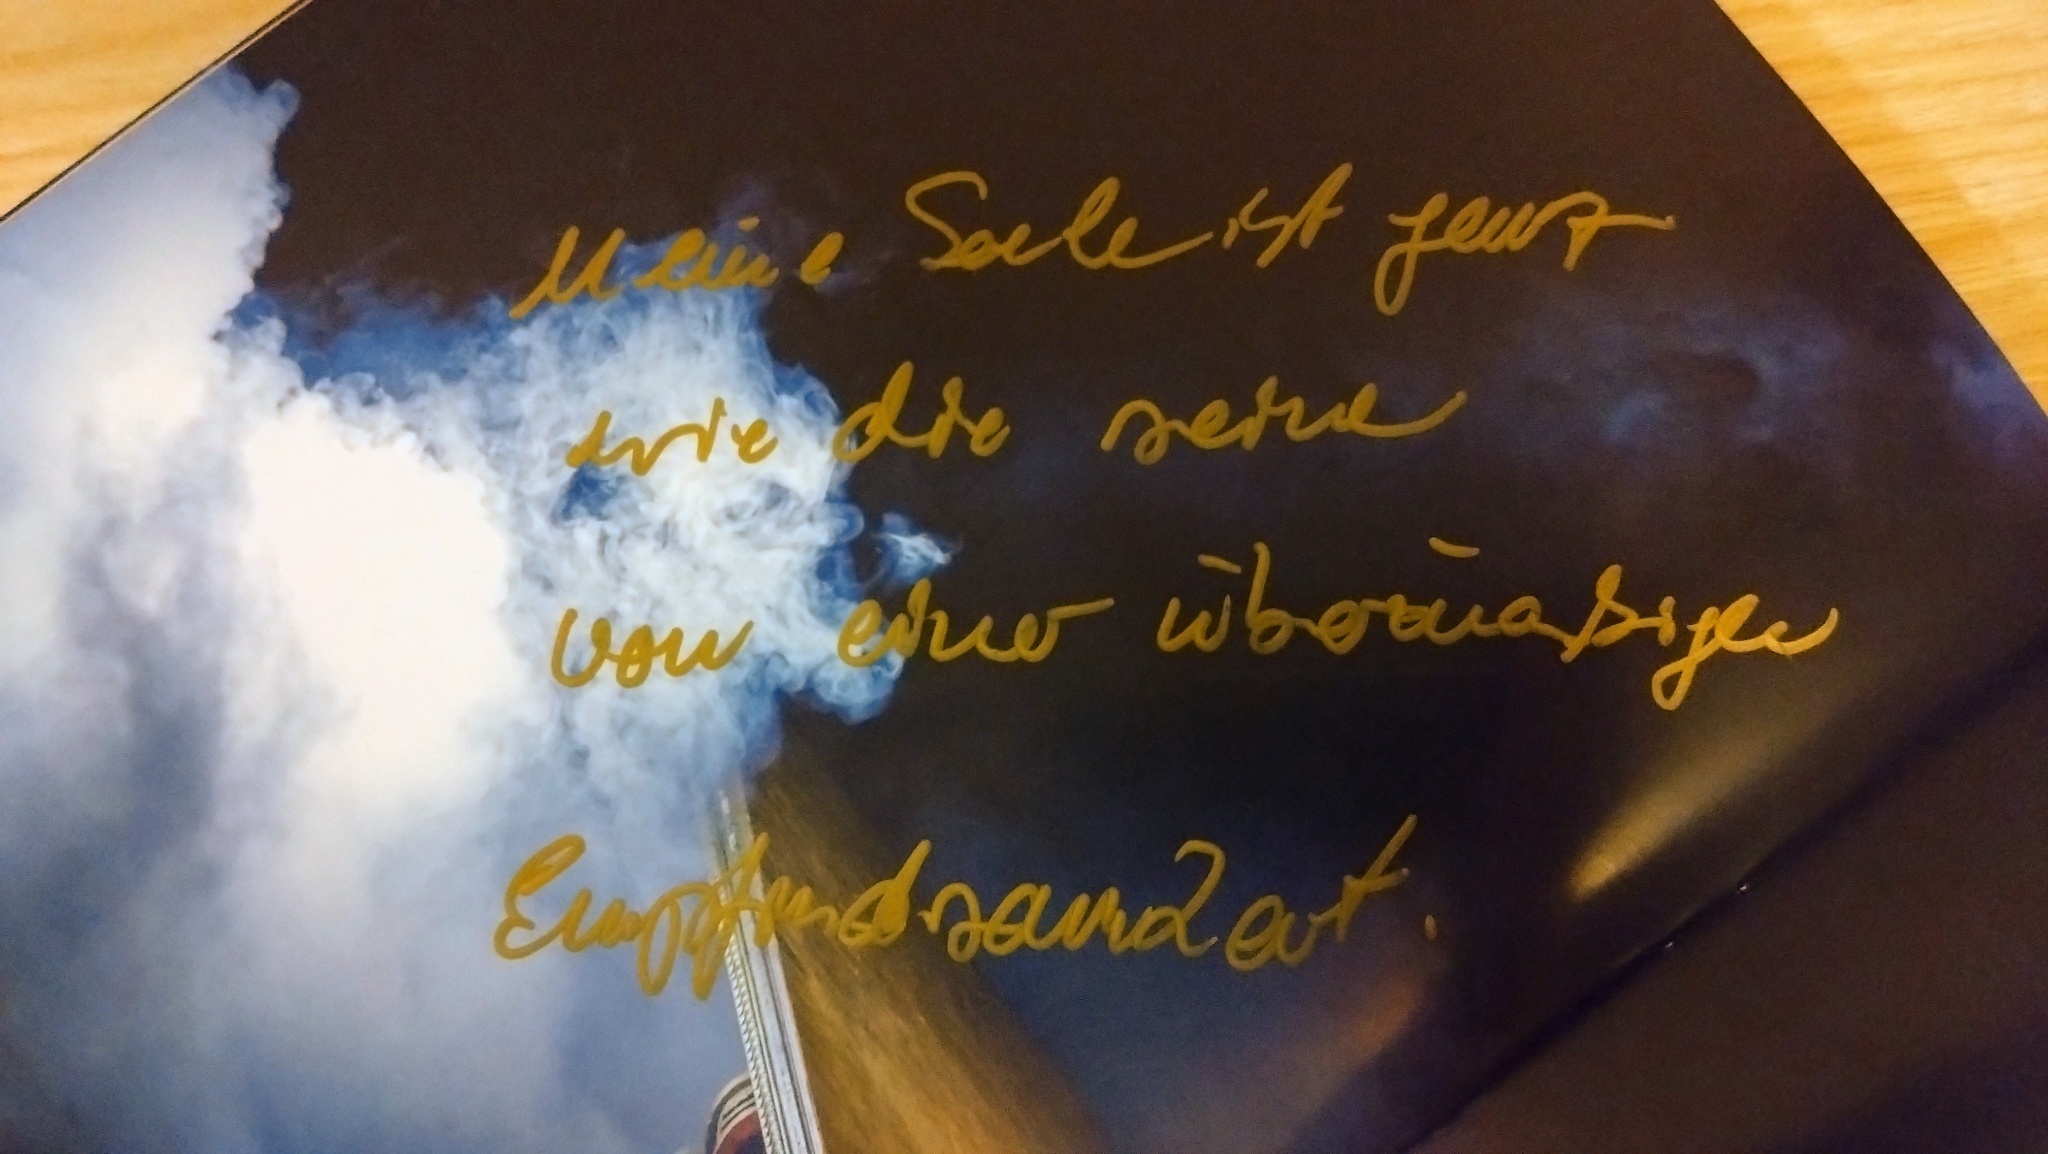 Meine Seele ist ganz
wie die seine
von einer übermäßigen
Empfindsamkeit.